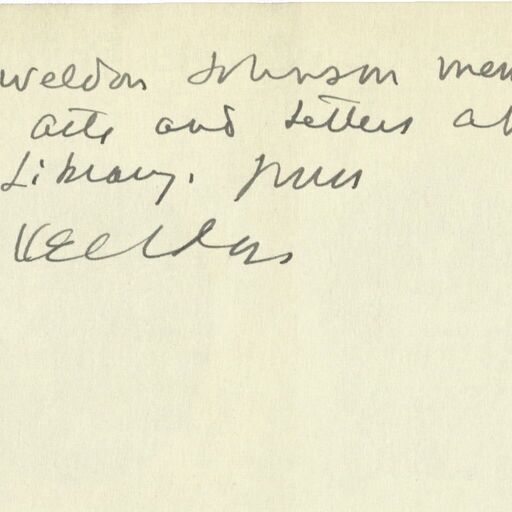 weldon Johnson mem
arts and Letters at
Library.